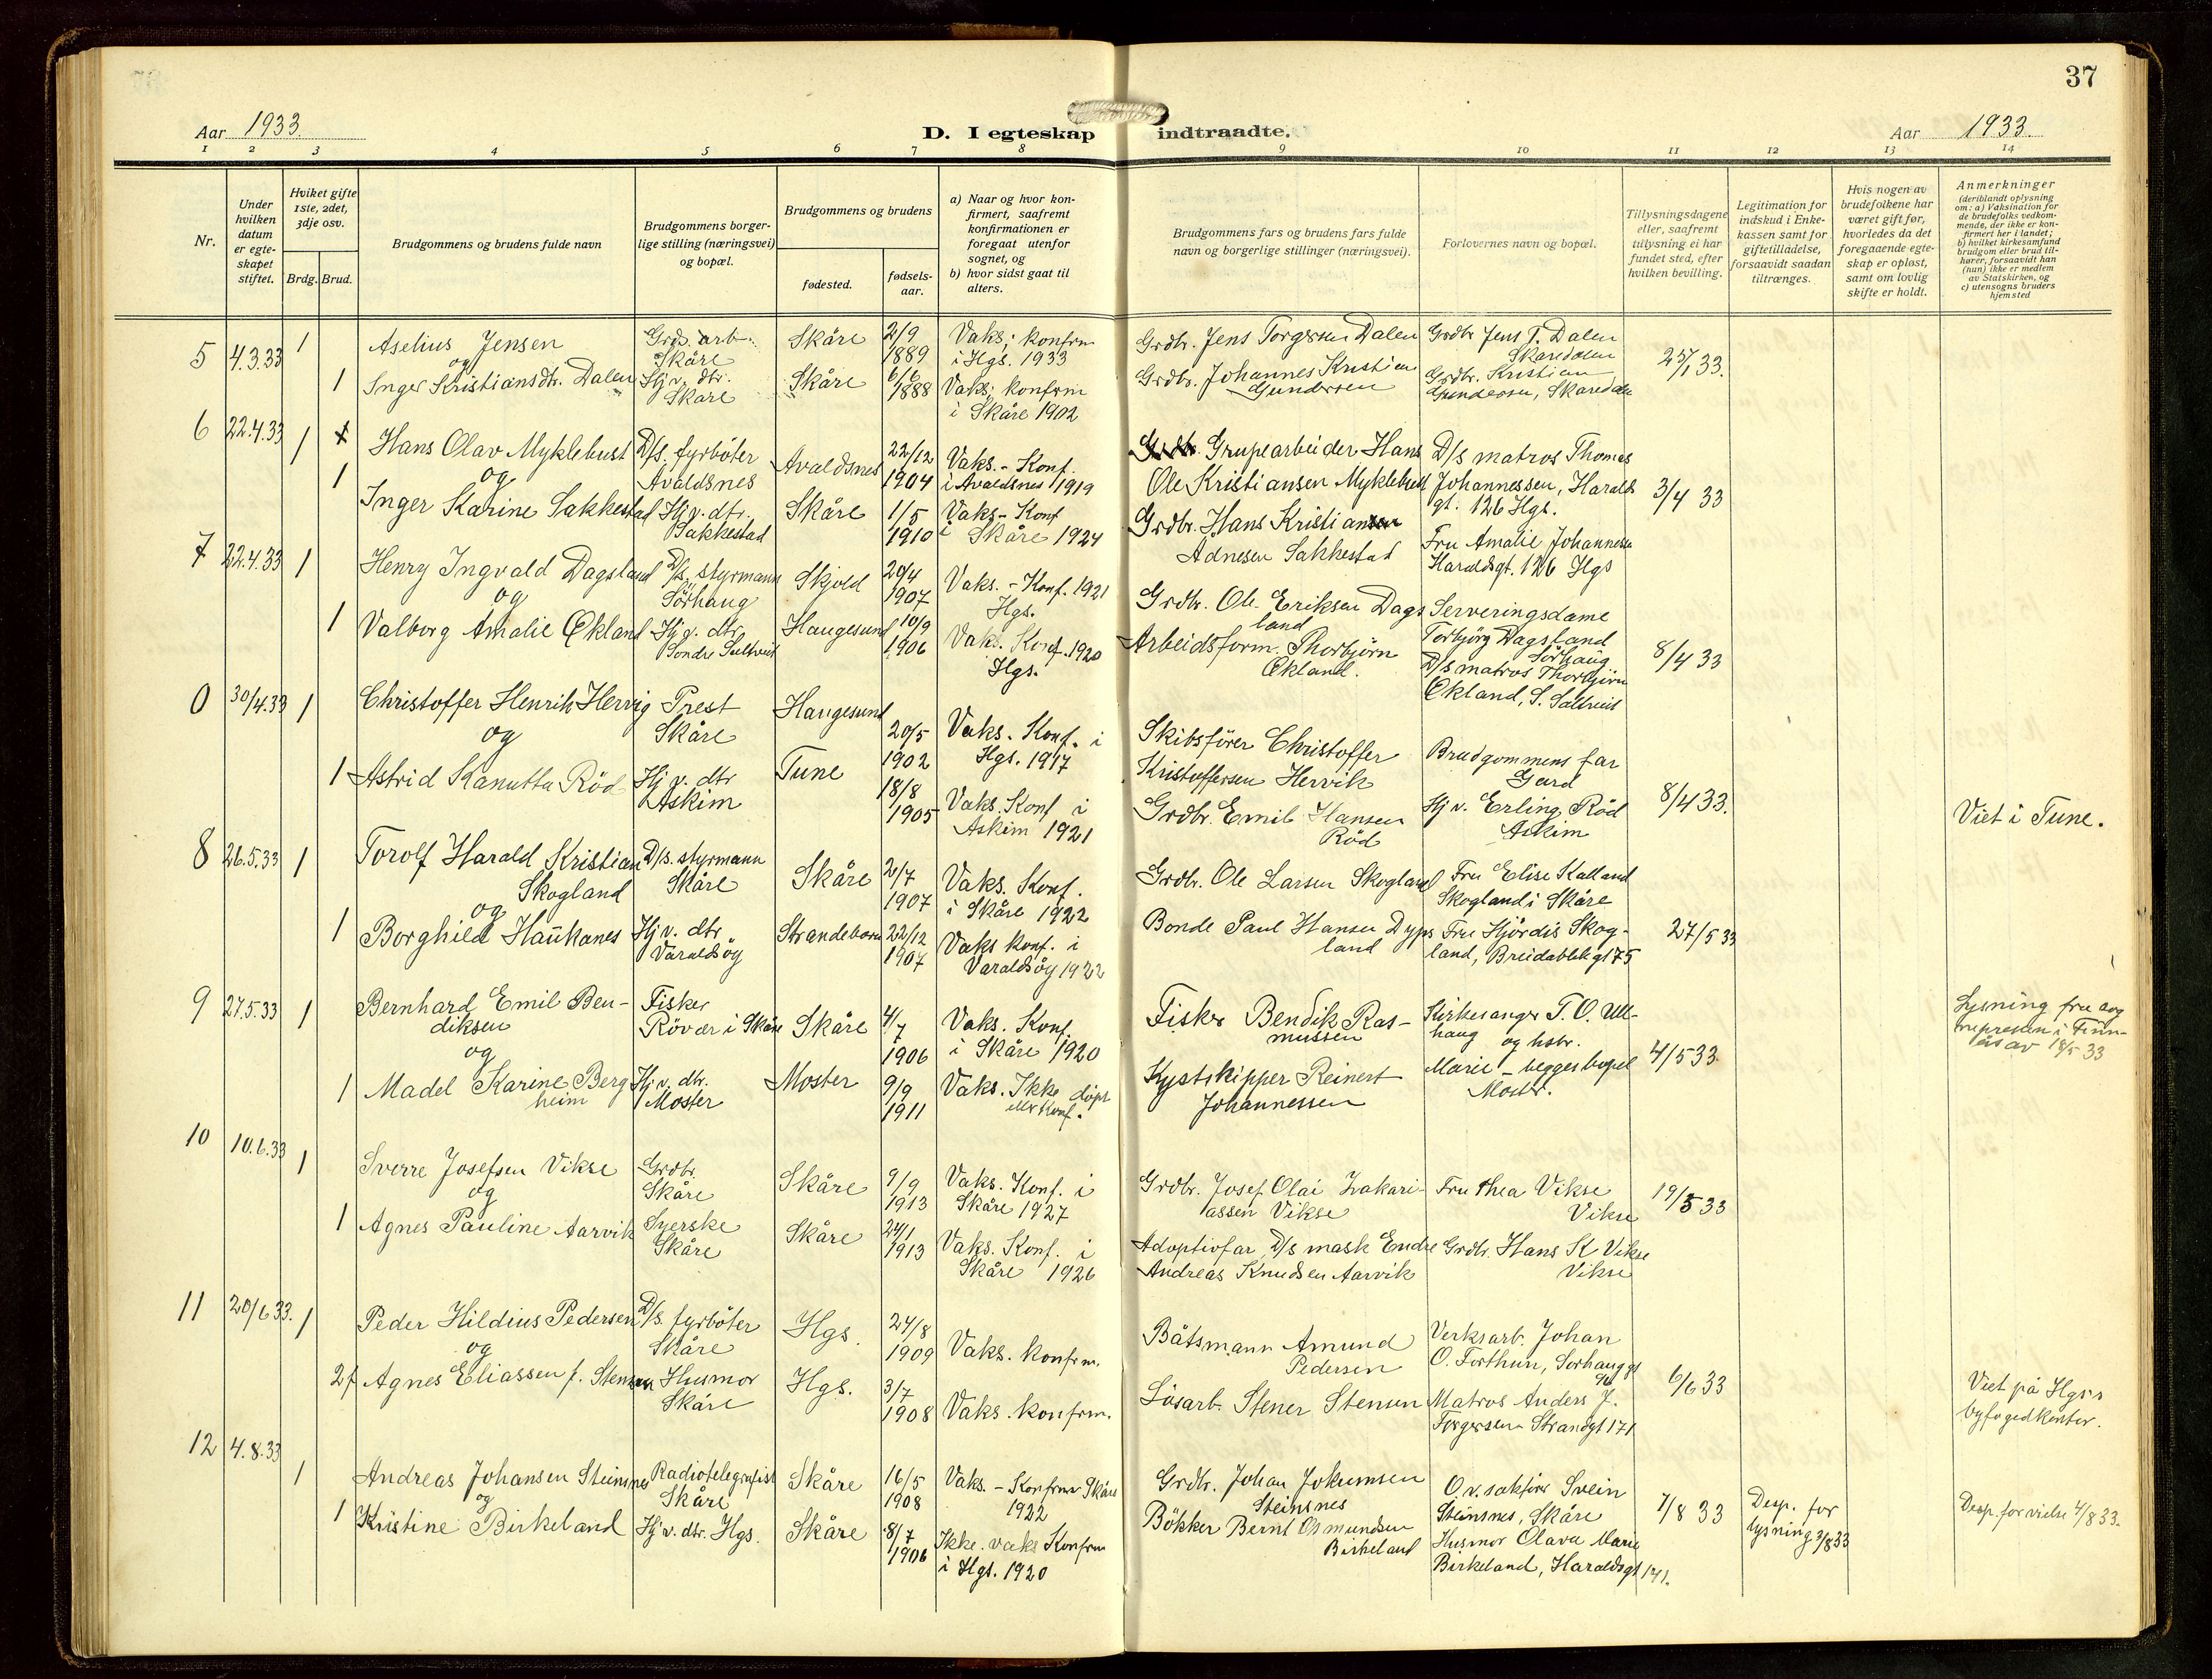 37
Aar 1933.
D. I egteskap indtraadte.
Aar 1933.
1 2 3 4 5 6 7 8 9 10 11 12 13 14
Nr.
Under hvilken datum er egteskapet stiftet.
Hviket gifte 1ste, 2det, 3dje osv.
Brdg. Brud.
Brudgommens og brudens fulde navn
Brudgommens borgerlige stilling (næringsvei) og bopæl.
Brudgommens og brudens
fødested.
fødselsaar.
a) Naar og hvor konfirmert, saafremt konfirmationen er foregaat utenfor sognet, og
b) hvor sidst gaat til alters.
Brudgommens fars og brudens fars fulde navn og borgerlige stillinger (næringsvei).
Forlovernes navn og bopæl.
Tillysningsdagene eller, saafremt tillysning ei har fundet sted, efter hvilken bevilling.
Legitimation for indskud i Enkekassen samt for giftetilladelse, forsaavidt saadan tiltrænges.
Hvis nogen av brudefolkene har været gift før, hvorledes da det foregaaende egteskap er opløst, samt om lovlig skifte er holdt.
Anmerkninger (deriblandt oplysning om: a) Vaksination for de brudefolks vedkommende, der ikke er konfirmert her i landet; b) hvilket kirkesamfund brudgom eller brud tilhører, forsaavidt han (hun) ikke er medlem av Statskirken, og c) utensogns bruders hjemsted
5 4.3.33 1 Aselius Jensen
og
Grds. arb. Skåre
Skåre 2/9 1889
Vaks; konfrm i Hgs. 1933
Grdbr. Jens Torgersen Dalen
Grdbr Jens T. Dalen Skaredalen
1 Inger Kristiansdtr. Dalen
Hj v. dtr. Skåre
Skåre 6/6 1888
Vaks; konfrm i Skåre 1902
Grdbr. Johannes Kristian Gundersen
Grdbr. Kristian Gundersen, Skaredalen
6 22.4.33 1 Hans Olav Myklebust
og
D/s. fyrböter Avaldsnes
Avaldsnes 22/12 1904
Vaks. - Konf. i Avaldsnes 1919
Grupearbeider Hans Ole Kristiansen Myklebust
D/s matros Thomas Johannessen, Haralds gt. 126 Hgs.
3/4 33
1 Inger Karine Sakkestad
Hj v. dtr. Sakkestad
Skåre 1/5 1910
Vaks - Konf i Skåre 1924
Grdbr. Hans Kristian Adnesen Sakkestad
Fru Amalie Johannessen Haraldsgt. 126 Hgs
7 22.4.33 1 Henry Ingvald Dagsland
og
D/s, styrmann Sörhaug
Skjold 29/4 1907
Vaks. - Konf. 1921 Hgs.
Grdbr. Ole Eriksen Dagsland
Serveringsdame Torbjörg Dagsland Sörhaug
8/4 33
1 Valborg Amalie Økland
Hj v. dtr Söndre Saltveit
Haugesund 10/9 1906
Vaks. Konf. 1920 Hgs.
Arbeidsform. Thorbjörn Økland.
D/s matros Thorbjörn Økland, S. Saltveit
0 30/4.33 1 Christoffer Henrik Hervig
og
Prest Skåre
Haugesund 20/5 1902
Vaks. Konf. i Hgs. 1917
Skibsförer Christoffer Kristoffersen Hervik
Brudgommens far Gard
8/4 33.
1 Astrid Kanutta Röd
Hj v. dtr Askim
Tune 18/8 1905
Vaks. Konf i Askim 1921
Grdbr. Emil Hansen Röd
Hj v. Erling Röd Askim
Viet i Tune.
8 26.5.33 1 Torolf Harald Kristian Skogland
og
D/s. styrmann Skåre
Skåre 2/7 1907
Vaks. Konf. i Skåre 1922
Grdbr. Ole Larsen Skogland
Fru Elise Kalland Skogland i Skåre
27/5 33
1 Borghild Haukanes
Hj v. dtr Varaldsöy
Strandebarm 22/12 1907
Vaks konf. i Varaldsöy 1922
Bonde Paul Hansen Dypsland
Fru Hjördis Skogland, Breidablikgt 75
9 27.5.33 1 Bernhard Emil Bendiksen
og
Fisker Rövær i Skåre
Skåre 4/7 1906
Vaks. Konf. i Skåre 1920
Fisker Bendik Rasmussen
Kirkesanger T. O. Ullhaug og hstr. Marie - begges bopel Moster.
4/5 33
Lysning fra sognepresten i Finnås av 18/5 33
1 Madel Karine Bergheim
Hj v. dtr. Moster
Moster 9/9 1911
Vaks. Ikke döpt eller Konf.
Kystskipper Reinert Johannessen
10 10.6.33 1 Sverre Josefsen Vikse
og
Grdbr. Skåre
Skåre 9/9 1913
Vaks. Konf. i Skåre 1927
Grdbr. Josef Olai Zakariassen Vikse
Fru Thea Vikse Vikse
19/5 33
1 Agnes Pauline Aarvik
Syerske Skåre
Skåre 24/1 1913
Vaks. Konf. i Skåre 1926
Adoptivfar, D/s mask Endre Andreas Knudsen Aarvik
Grdbr. Hans K Vikse Vikse
11 20/6 33. 1 Peder Hildius Pedersen
og
D/s. fyrböter Skåre
Hgs. 24/8 1909
Vaks. konfrm.
Båtsmann Amund Pedersen
Verksarb. Johan O. Forthun, Sorhauggt
6/6 33
2 f Agnes Eliassen f. Stensen
Husmor Skåre
Hgs. 3/7 1908
Vaks. konfrm.
Lösarb. Stener Stensen
Matros Anders J. Torgersen Strandgt 171
Viet på Hgs's byfogedkontor.
12 4.8.33 1 Andreas Johansen Steinsnes
og
Radiotelegrafist Skåre
Skåre 16/5 1908
Vaks. - Konfrm Skåre 1922
Grdbr. Johan Jokumsen Steinsnes
O.r.sakförer Svein Steinsnes, Skåre
7/8 33
Desp. for lysning 3/8 33
Desp. for vielse 4/8 33.
1 Kristine Birkeland
Hj v. dtr. Hgs.
Skåre 8/7 1906
Ikke. vaks Konfrm i Hgs. 1920
Bökker Bernt Osmundsen Birkeland
Husmor Olava Marie Birkeland, Haraldsgt 171.